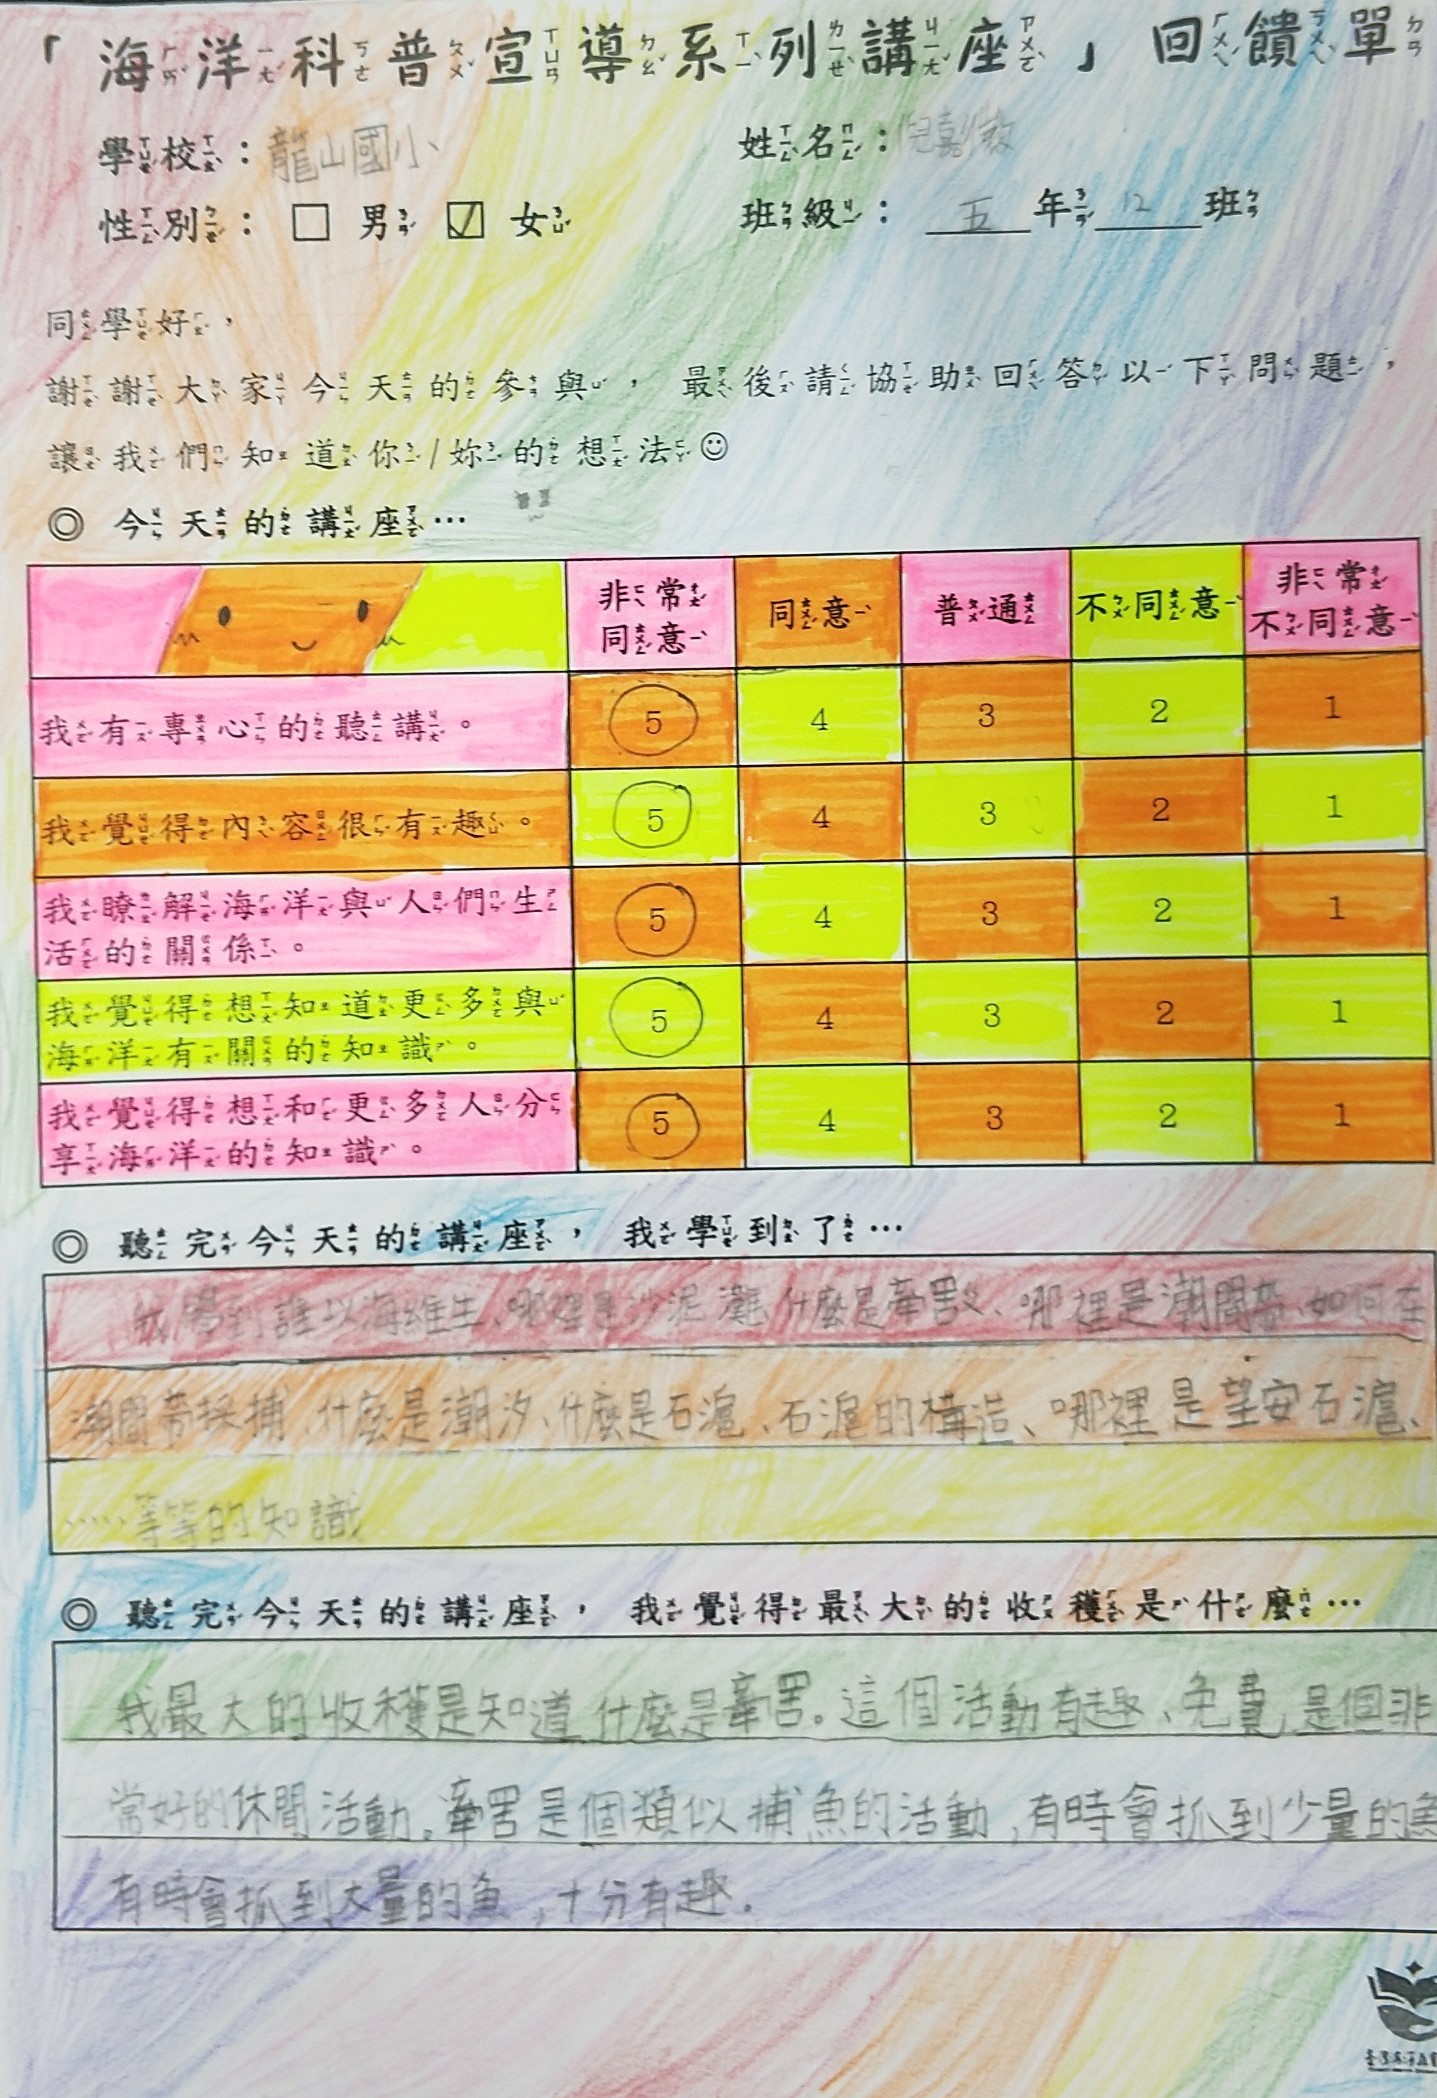 「海洋科普宣導系列講座」回饋單
學校：龍山國小 姓名：倪嘉
性別：□男 ☑女 班級：五年12班
同學好，
謝謝大家今天的參與，最後請協助回答以下問題，
讓我們知道你/妳的想法☺
◎ 今天的講座…
非常同意 同意 普通 不同意 非常不同意
我有專心的聽講。 5 4 3 2 1
我覺得內容很有趣。 5 4 3 2 1
我瞭解海洋與人們生
活的關係。 5 4 3 2 1
我覺得想知道更多與
海洋有關的知識。 5 4 3 2 1
我覺得想和更多人分
享海洋的知識。 5 4 3 2 1
◎ 聽完今天的講座，我學到了…
我學到誰以海維生、哪裡是沙泥灘、什麼是牽罟、哪裡是潮間帶、如何在
潮間帶採捕、什麼是潮汐、什麼是石滬、石滬的構造、哪裡是望安石滬、
……等等的知識
◎ 聽完今天的講座，我覺得最大的收穫是什麼…
我最大的收穫是知道什麼是牽罟。這個活動有趣、免費，是個非
常好的休閒活動。牽罟是個類似捕魚的活動，有時會抓到少量的魚
有時會抓到大量的魚，十分有趣。